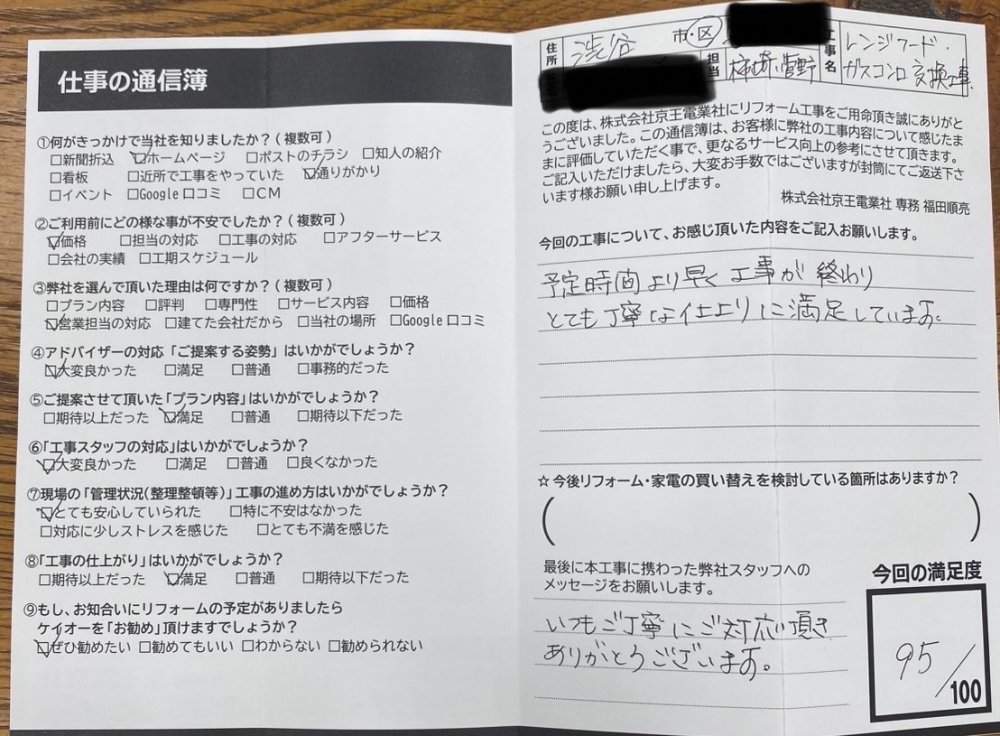 仕事の通信簿
①何がきっかけで当社を知りましたか？(複数可)
□新聞折込 ☑ホームページ □ポストのチラシ □知人の紹介
□看板 □近所で工事をやっていた ☑通りがかり
□イベント □Google口コミ □CM
②ご利用前にどの様な事が不安でしたか？(複数可)
☑価格 □担当の対応 □工事の対応 □アフターサービス
□会社の実績 □工期スケジュール
③弊社を選んで頂いた理由は何ですか？(複数可)
□プラン内容 □評判 □専門性 □サービス内容 □価格
☑営業担当の対応 □建てた会社だから □当社の場所 □Google口コミ
④アドバイザーの対応「ご提案する姿勢」はいかがでしょうか？
☑大変良かった □満足 □普通 □事務的だった
⑤ご提案させて頂いた「プラン内容」はいかがでしょうか？
□期待以上だった ☑満足 □普通 □期待以下だった
⑥「工事スタッフの対応」はいかがでしょうか？
☑大変良かった □満足 □普通 □良くなかった
⑦現場の「管理状況(整理整頓等)」工事の進め方はいかがでしょうか？
☑とても安心していられた □特に不安はなかった
□対応に少しストレスを感じた □とても不満を感じた
⑧「工事の仕上がり」はいかがでしょうか？
□期待以上だった ☑満足 □普通 □期待以下だった
⑨もし、お知合いにリフォームの予定がありましたら
ケイオーを「お勧め」頂けますでしょうか？
☑ぜひ勧めたい □勧めてもいい □わからない □勧められない
住所 渋谷 市・区
担当 柿崎 菅野
工事名 レンジフード・
ガスコンロ交換工事
この度は、株式会社京王電業社にリフォーム工事をご用命頂き誠にありがと
うございました。この通信簿は、お客様に弊社の工事内容について感じたま
まに評価していただく事で、更なるサービス向上の参考にさせて頂きます。
ご記入いただけましたら、大変お手数ではございますが封筒にてご返送下さ
います様お願い申し上げます。
株式会社京王電業社 専務 福田順亮
今回の工事について、お感じ頂いた内容をご記入お願いします。
予定時間より早く工事が終わり
とても丁寧な仕上りに満足しています。
☆今後リフォーム・家電の買い替えを検討している箇所はありますか？
( )
最後に本工事に携わった弊社スタッフへの
メッセージをお願いします。
いつもご丁寧にご対応頂き
ありがとうございます。
今回の満足度
95/100